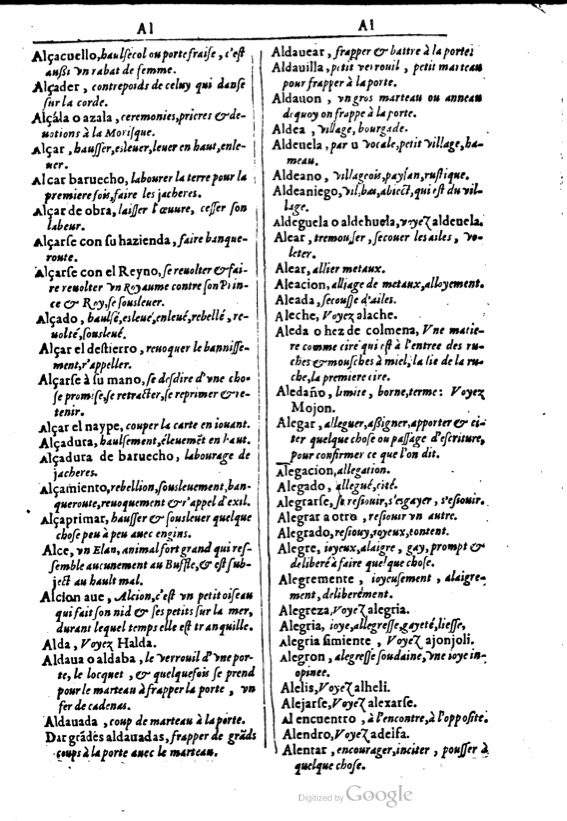 Al
Alçacuello, haulsécol ou portefraise, c'est
aussi vn rabat de femme.
Alçader, contrepoids de celuy qui danse
sur la corde.
Alçála o azala, ceremonies, prieres & de-
uotions à la Morisque.
Alçar, hausser, esleuer, leuer en haut, enle-
uer.
Alcar baruecho, labourer la terre pour la
premiere fois, faire les jacheres.
Alçar de obra, laisser l'œuure, cesser son
labeur.
Alçarse con su hazienda, faire banque-
route.
Alçarse con el Reyno, se reuolter & fai-
re reuolter vn Royaume contre son Prin-
ce & Roy, se sousleuer.
Alçado, haulsé, esleué, enleué, rebellé, re-
uolté, sousleué.
Alçar el destierro, reuoquer le bannisse-
ment, r'appeller.
Alçarse à su mano, se desdire d'vne cho-
se promise, se retracter, se reprimer & re-
tenir.
Alçar el naype, couper la carte en iouant.
Alçadura, haulsement, éleuemēt en haut.
Alçadura de baruecho, labourage de
jacheres.
Alçamiento, rebellion, sousleuement, ban-
queroute, reuoquement & r'appel d'exil.
Alçaprimar, hausser & sousleuer quelque
chose peu à peu auec engins.
Alce, vn Elan, animal fort grand qui res-
semble aucunement au Buffle, & est sub-
ject au hault mal.
Alcion aue, Alcion, c'est vn petit oiseau
qui fait son nid & ses petits sur la mer,
durant lequel temps elle est tranquille.
Alda, Voyez Halda.
Aldaua o aldaba, le verrouil d'vne por-
te, le locquet, & quelquefois se prend
pour le marteau à frapper la porte, vn
fer de cadenas.
Aldauada, coup de marteau à la porte.
Dar grādes aldauadas, frapper de grāds
coups à la porte auec le marteau.
Al
Aldauear, frapper & battre à la porte
Aldauilla, petit verrouil, petit marteau
pour frapper à la porte.
Aldauon, vn gros marteau ou anneau
dequoy on frappe à la porte.
Aldea, village, bourgade.
Aldeuela, par u vocale, petit village, ha-
meau.
Aldeano, villageois, paysan, rustique.
Aldeaniego, vil, bas, abiect, qui est du vil-
lage.
Aldeguela o aldehuela, voyez aldeuela.
Alear, tremousser, secouer les ailes, vo-
leter.
Alear, allier metaux.
Aleacion, alliage de metaux, alloyement.
Aleada, secousse d'ailes.
Aleche, Voyez alache.
Aleda o hez de colmena, Vne matie-
re comme cire qui est à l'entree des ru-
ches & mousches à miel, la lie de la ru-
che, la premiere cire.
Aledaño, limite, borne, terme: Voyez
Mojon.
Alegar, alleguer, assigner, apporter & ci-
ter quelque chose ou passage d'escriture,
pour confirmer ce que l'on dit.
Alegacion, allegation.
Alegado, allegué, cité.
Alegrarse, se resiouir, s'esgayer, s'esiouir.
Alegrar a otro, resiouir vn autre.
Alegrado, resiouy, ioyeux, content.
Alegre, ioyeux, alaigre, gay, prompt &
deliberé à faire quelque chose.
Alegremente, ioyeusement, alaigre-
ment, deliberément.
Alegreza, Voyez alegria.
Alegria, ioye, allegresse, gayeté, liesse,
Alegria simiente, Voyez ajonjoli.
Alegron, alegresse soudaine, vne ioye in-
opinee.
Alelis, Voyez alheli.
Alejarse, Voyez alexarse.
Al encuentro, à l'encontre, à l'opposite.
Alendro, Voyez adelfa.
Alentar, encourager, inciter, pousser à
quelque chose.
Digitized by Google